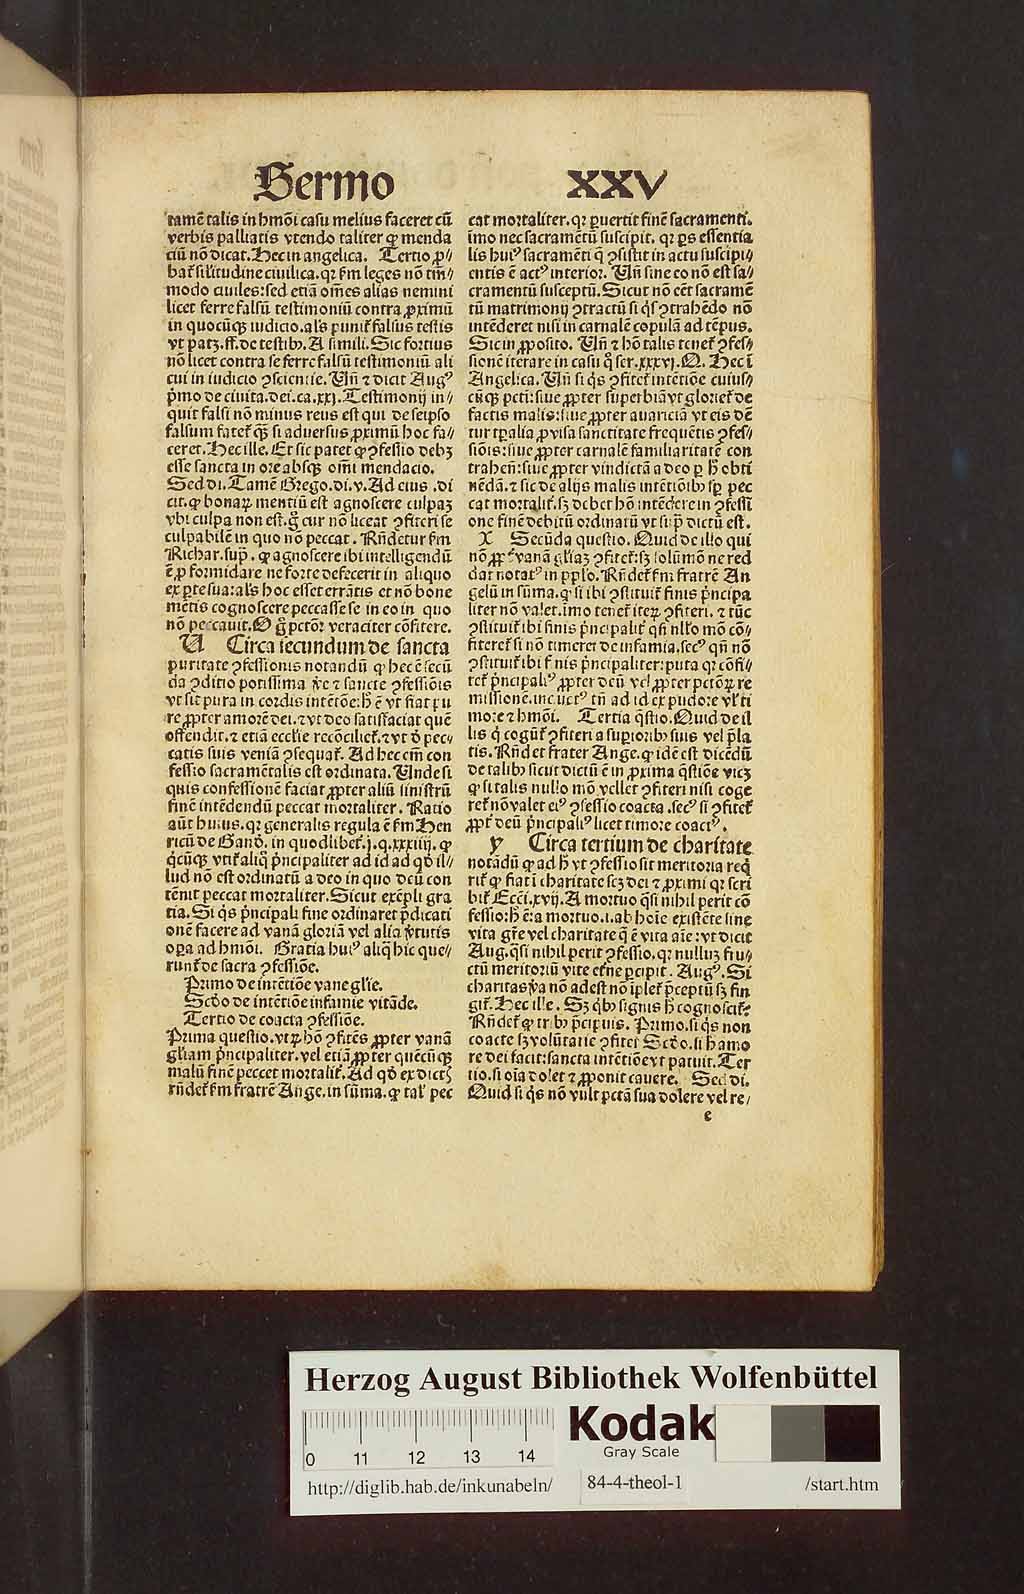 Sermo XXV
tamē talis in hmōi casu melius faceret cū
verbis palliatis vtendo taliter ꝙ menda
ciū nō dicat. Hec in angelica. Tertio ꝓ⸗
bat᷑ silitudine ciuilica. qꝛ ẜm leges nō tm̄⸗
modo ciuiles: sed etiā om̄es alias nemini
licet ferre falsū testimoniū contra ꝓximū
in quocūqꝫ iudicio. als punit᷑ falsus testis
vt patꝫ. ff. de testibꝰ. A simili. Sic fortius
nō licet contra se ferre falsū testimoniū ali
cui in iudicio ꝯscientie. Uñ ⁊ dicit Augꝰ
pͥmo de ciuita. dei. ca. xxj. Testimonij in⸗
quit falsi nō minus reus est qui de seipso
falsum fatet᷑ qͣꝫ si aduersus ꝓximū hoc fa⸗
ceret. Hec ille. Et sic patet ꝙ ꝯfessio debꝫ
esse sancta in ore absqꝫ om̄i mendacio.
Sed di. Tamē Grego. di. v. Ad eius. di
cit. ꝙ bonaꝝ mentiū est agnoscere culpaꝫ
vbi culpa non est. gͦ cur nō liceat ꝯfiteri se
culpabilē in quo nō peccat. Rñdetur ẜm
Richar. supͣ. ꝙ agnoscere ibi intelligendū
ē ꝓ formidare ne forte defecerit in aliquo
ex parte sua: als hoc esset errātis et nō bone
mētis cognoscere peccasse se in eo in quo
nō peccauit. O gͦ pctōꝛ veraciter cōfitere.
U Circa secundum de sancta
puritate ꝯfessionis notandū ꝙ hec ē secū
da ꝯditio potissima vͤe ⁊ sancte ꝯfessiōis
vt sit pura in cordis intētōe: hͦ ē vt fiat pu
re ꝓpter amorē dei. ⁊ vt deo satisfaciat quē
offendit. ⁊ etiā eccl̄ie recōciliet᷑. ⁊ vt ꝺ̓ pec⸗
catis suis veniā ꝯsequat᷑. Ad hec em̄ con
fessio sacramētalis est ordinata. Unde si
quis confessionē faciat ꝓpter aliū sinistrū
finē intēdendū peccat mortaliter. Ratio
aūt huius. qꝛ generalis regula ē ẜm Hen
ricū de Gandͦ. in quodlibet. j. q. xxxiiij. ꝙ
qͥcūqꝫ vtit᷑ aliqͦ pͥncipaliter ad id ad qdͦ il⸗
lud nō est ordinatū a deo in quo deū con
tēnit peccat mortaliter. Sicut exēpli gra
tia. Si qͥs pͥncipali fine ordinaret pͥdicati
onē facere ad vanā gloriā vel alia vͥtutis
oꝑa ad hmōi. Gratia huiꝰ aliqͣ hic que⸗
runt᷑ de sacra ꝯfessiōe.
Primo de intētiōe vane gl̄ie.
Scdͦo de intētiōe infamie vitāde.
Tertio de coacta ꝯfessiōe.
Prima questio. vtꝝ hō ꝯfitēs ꝓpter vanā
gl̄iam pͥncipaliter. vel etiā ꝓpter quēcūqꝫ
malū finē peccet mortalit᷑. Ad qdͦ ex dictꝭ
rñdet᷑ ẜm fratrē Ange. in sūma. ꝙ talꝰ pec
cat mortaliter. qꝛ ꝑuertit finē sacramenti.
imo nec sacramētū suscipit. qꝛ ꝑs essentia
lis huiꝰ sacramēti qͥ ꝯsistit in actu suscipi⸗
entis ē actꝰ interior. Uñ sine eo nō est sa⸗
cramentū susceptū. Sicut nō eēt sacramē
tū matrimonij ꝯtractū si qͥs ꝯtrahēdo nō
intēderet nisi in carnalē copulā ad tēpus.
Sic in ꝓposito. Uñ ⁊ hō talis tenet᷑ ꝯfes⸗
sionē iterare in casu qͦ ser. xxxvj. Q. Hec ī
Angelica. Uñ si qͥs ꝯfitet᷑ intētiōe cuius⸗
cūqꝫ pcti: siue ꝓpter superbiā vt gloriet᷑ de
factis malis: siue ꝓpter auariciā vt eis dē
tur tꝑalia ꝓ visa sanctitate frequētis ꝯfes⸗
siōis: siue ꝓpter carnalē familiaritatē con
trahen̄: siue ꝓpter vindictā a deo ꝑ hͦ obti
nēdā. ⁊ sic de alijs malis intētiōibꝰ sꝑ pec
cat mortalit᷑. sꝫ debet hō intēdere in ꝯfessi
one finē debitū ordinatū vt supͣ dictū est.
X Secūda questio. Quid de illo qui
nō ꝓpter vanā gl̄iaꝫ ꝯfitet᷑: sꝫ solūmō ne red
dat᷑ notatꝰ in ppl̄o. Rñdet᷑ ẜm fratrē An
gelū in sūma. ꝙ si ibi ꝯstituit᷑ finis pͥncipa
liter nō valet. imo tenet᷑ iteꝝ ꝯfiteri. ⁊ tūc
ꝯstituit᷑ ibi finis pͥncipalit᷑ qn̄ nllo mō cō⸗
fiteret᷑ si nō timeret de infamia. secꝰ qn̄ nō
ꝯstituit᷑ ibi finis pͥncipaliter: puta qꝛ cōfi⸗
tet᷑ pͥncipaliꝰ ꝓpter deū vel ꝓpter pctōꝝ re
missionē. inductꝰ tn̄ ad id ex pudore vl̓ ti
more ⁊ hmōi. Tertia qͣstio. Quid de il
lis qͥ cogūt᷑ ꝯfiteri a superioribꝰ suis vel pͥla
tis. Rñdet frater Ange. ꝙ idē est dicēdū
de talibꝰ sicut dictū ē in ꝓxima qͣstiōe vicꝫ
ꝙ si talis nullo mō vellet ꝯfiteri nisi coge
ret᷑ nō valet eiꝰ ꝯfessio coacta. secꝰ si ꝯfitet᷑
ꝓpt᷑ deū pͥncipaliꝰ licet timore coactꝰ.
y Circa tertium de charitate
notādū ꝙ ad hͦ vt ꝯfessio sit meritoria reqͥ
rit᷑ ꝙ fiat ī charitate scꝫ dei ⁊ ꝓximi qꝛ scri
bit᷑ Ecci. xvij. A mortuo qͣsi nihil perit cō
fessio: hͦ ē: a mortuo. i. ab hoīe existēte sine
vita gr̄e vel charitate qͥ ē vita aīe: vt dicit
Aug. qͣsi nihil perit ꝯfessio. qꝛ nulluꝫ fru⸗
ctū meritoriū vite etne ꝑcipit. Augꝰ. Si
charitas vͤa nō adest nō īplet᷑ pͥceptū sꝫ fin
git᷑. Hec ille. Sꝫ qͥbꝰ signis hͦ cognoscit᷑.
Rñdet᷑ ꝙ tribꝰ pͥcipuis. Primo. si qͥs non
coacte sꝫ volūtarie ꝯfitet᷑ Scdͦo. si hͦ amo
re dei facit: sancta intētiōe vt patuit. Ter
tio. si oīa dolet ⁊ ꝓponit cauere. Sed di.
Quid si qͥs nō vult pctā sua dolere vel re⸗
e
Herzog August Bibliothek Wolfenbüttel
Kodak
Gray Scale
0 11 12 13 14
http://diglib.hab.de/inkunabeln/ 84-4-theol-1 /start.htm